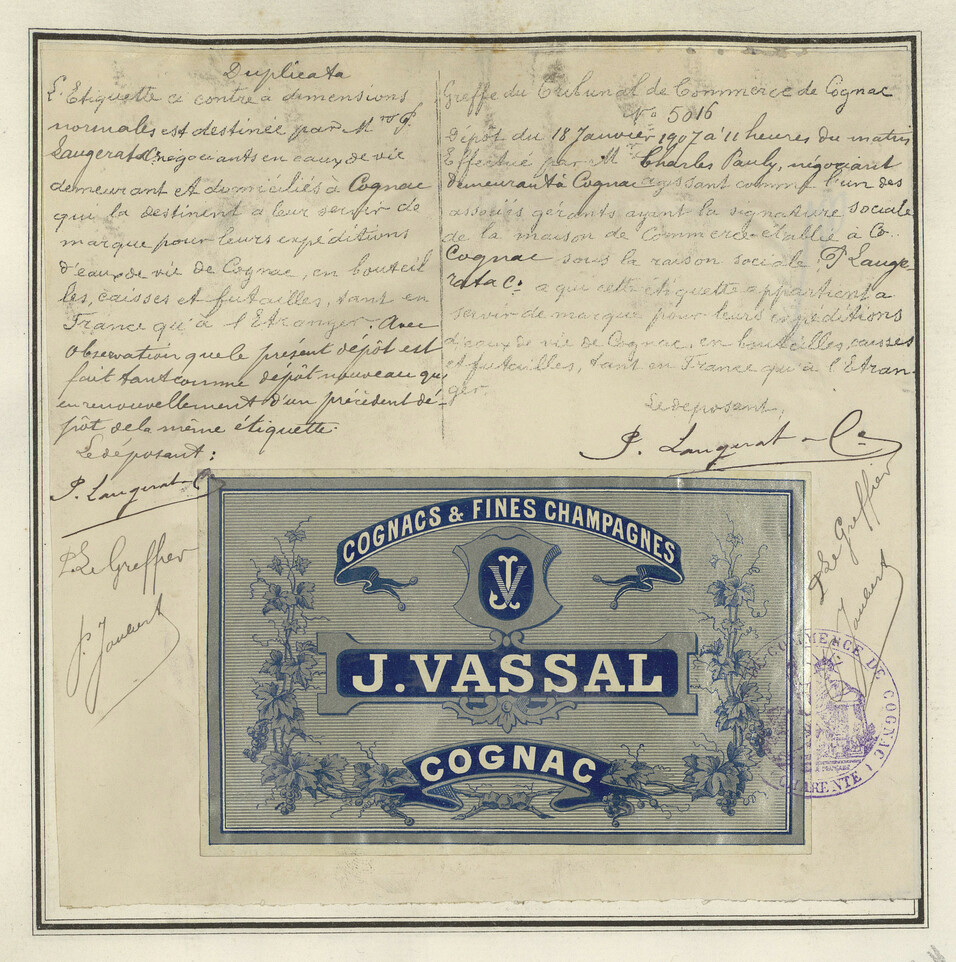 Duplicata
L'Etiquette ci contre à dimensions
normales est destinée par M.rs P.
Laugerat négociants en eaux de vie
demeurant et domiciliés à Cognac
qui la destinent à leur servir de
marque pour leurs expéditions
d'eaux de vie de Cognac, en bouteil
les, caisses et futailles, tant en
France qu'à l'Etranger. Avec
observation que le présent dépôt est
fait tant comme dépôt nouveau qu'
en renouvellement d'un précédent dé-
pôt de la même étiquette.
Le déposant:
P. Laugerat & Cie
P. Le Greffier
P. Joubert
Greffe du Tribunal de Commerce de Cognac
No 5016
Dépôt du 18 Janvier 1907 à 11 heures du matin
Effectué par Mr Charles Pauly, négociant
demeurant à Cognac agissant comme l'un des
associés gérants ayant la signature sociale
de la maison de Commerce établie à Co..
Cognac sous la raison sociale, P. Lauge-
rat & Co. à qui cette étiquette appartient à
servir de marque pour leurs expéditions
d'eaux de vie de Cognac, en bouteilles, caisses
et futailles, tant en France qu'à l'Etran-
ger.
Le déposant,
P. Laugerat & Cie
P. Le Greffier
Joubert
COGNACS & FINES CHAMPAGNES
JV
J. VASSAL
COGNAC
COMMERCE DE COGNAC
CHARENTE